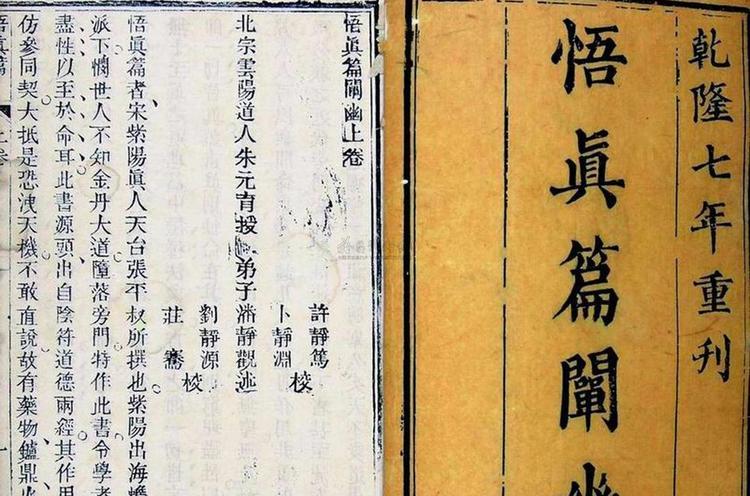 乾隆七年重刊
悟眞篇闡幽
悟眞篇闡幽上卷
北宗雲陽道人朱元育授 弟子潘靜觀述
許靜篤
卜靜淵 校
劉靜源
莊騫 校
悟眞篇者宋紫陽眞人天台張平叔所撰也紫陽出海蟾
派下憫世人不知金丹大道墮落旁門特作此書令學者
盡性以至於命耳此書源頭出自陰符道德兩經其作用
仿參同契大抵是恐洩天機不敢直說故有藥物鑪鼎火
悟眞篇 上卷 一